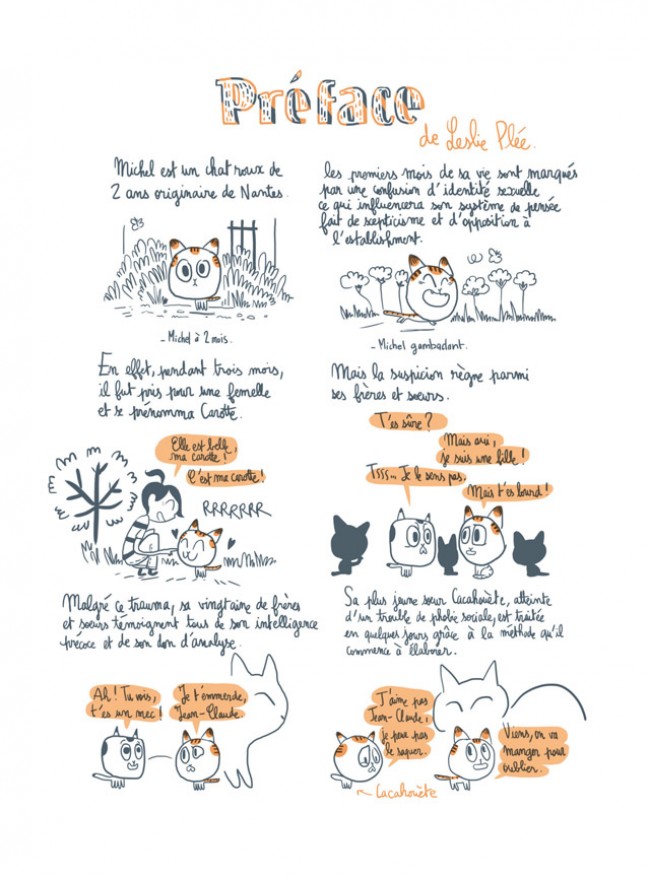 Préface
de Leslie Plée.
Michel est un chat roux de
2 ans originaire de Nantes.
_ Michel à 2 mois.
les premiers mois de sa vie sont marqués
par une confusion d'identité sexuelle
ce qui influencera son système de pensée
fait de scepticisme et d'opposition à
l'establishment.
_ Michel gambadant.
En effet, pendant trois mois,
il fut pris pour une femelle
et se prénomma Carotte.
Elle est belle
ma carotte !
C'est ma carotte !
RRRRRRR
Mais la suspicion règne parmi
ses frères et soeurs.
T'es sûre ?
Mais oui,
je suis une fille !
Tsss... Je le sens pas.
Mais t'es lourd !
Malgré ce trauma, sa vingtaine de frères
et soeurs témoignent tous de son intelligence
précoce et de son don d'analyse.
Ah ! Tu vois,
t'es un mec !
Je t'emmerde,
Jean-Claude.
Sa plus jeune soeur Cacahouète, atteinte
d'un trouble de phobie sociale, est traitée
en quelques jours grâce à la méthode qu'il
commence à élaborer.
J'aime pas
Jean-Claude,
je peux pas
le saquer.
Viens, on va
manger pour
oublier.
Cacahouète